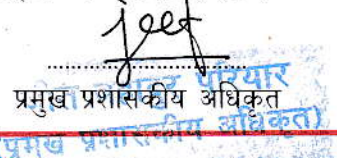 प्रमुख प्रशासकीय अधिकृत
परियार
(प्रमुख प्रशासकीय अधिकृत)